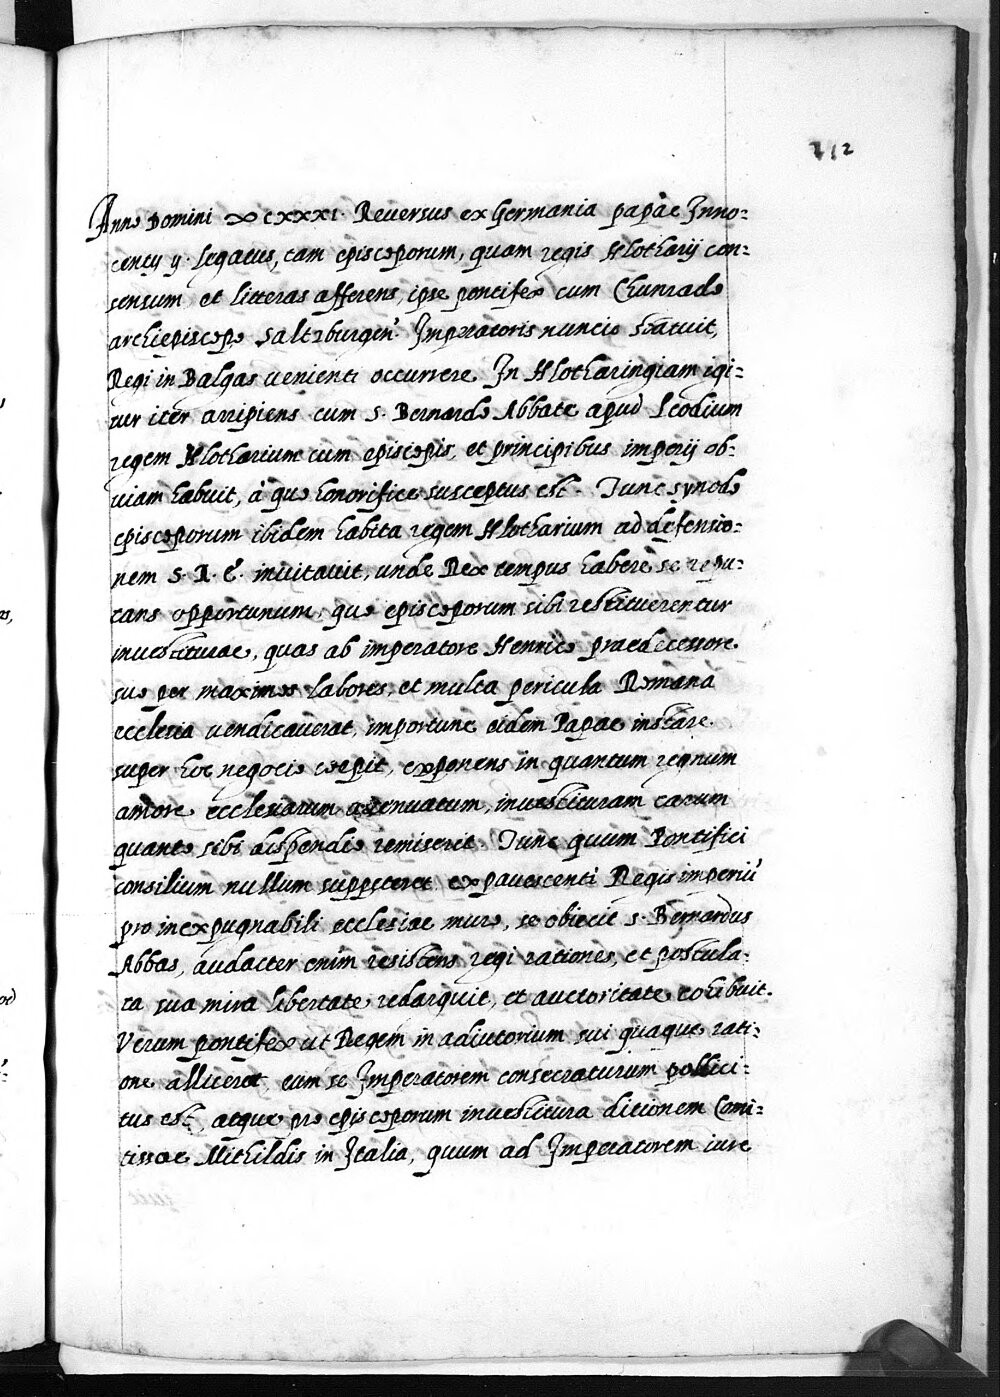 212
Anno Domini ∞ CXXXI. Reversus ex Germania papae Inno-
centij ij. legatus, tam episcoporum, quam regis Hlotharij con-
sensum et litteras afferens, ipse pontifex cum Chunrado
archiepiscopo Saltzburgen̄. Imperatoris nuncio statuit,
Regi in Balgas venienti occurrere. In Hlotharingiam igi-
tur iter arripiens cum S. Bernardo Abbate apud Leodium
regem Hlotharium cum episcopis, et principibus imperij ob-
viam habuit, à quo honorifice susceptus est. Tunc synodo
episcoporum ibidem habita regem Hlotharium ad defensio-
nem S. R. E. invitavit, unde Rex tempus habere se repu-
tans opportunum, quo episcoporum sibi restituerentur
investiturae, quas ab imperatore Henrico praedecessore
suo per maximos labores, et multa pericula Romana
ecclesia vendicaverat, importune eidem Papae instare
super hoc negocio coepit, exponens in quantum regnum
amore ecclesiarum attenuatum, investituram earum
quanto sibi dispendio remiserit. Tunc quum Pontifici
consilium nullum suppeteret expavescenti Regis imperiū
pro inexpugnabili ecclesiae muro, se obiecit S. Bernardus
Abbas, audacter enim resistens regi rationes, et postula-
ta sua mira libertate redarquit, et auctoritate cohibuit.
Verum pontifex ut Regem in adiutorium sui quaque rati-
one alliceret, eum se Imperatorem consecraturum pollici-
tus est, atque pro episcoporum investitura ditionem Comi-
tissae Mithildis in Italia, quum ad Imperatorem iure